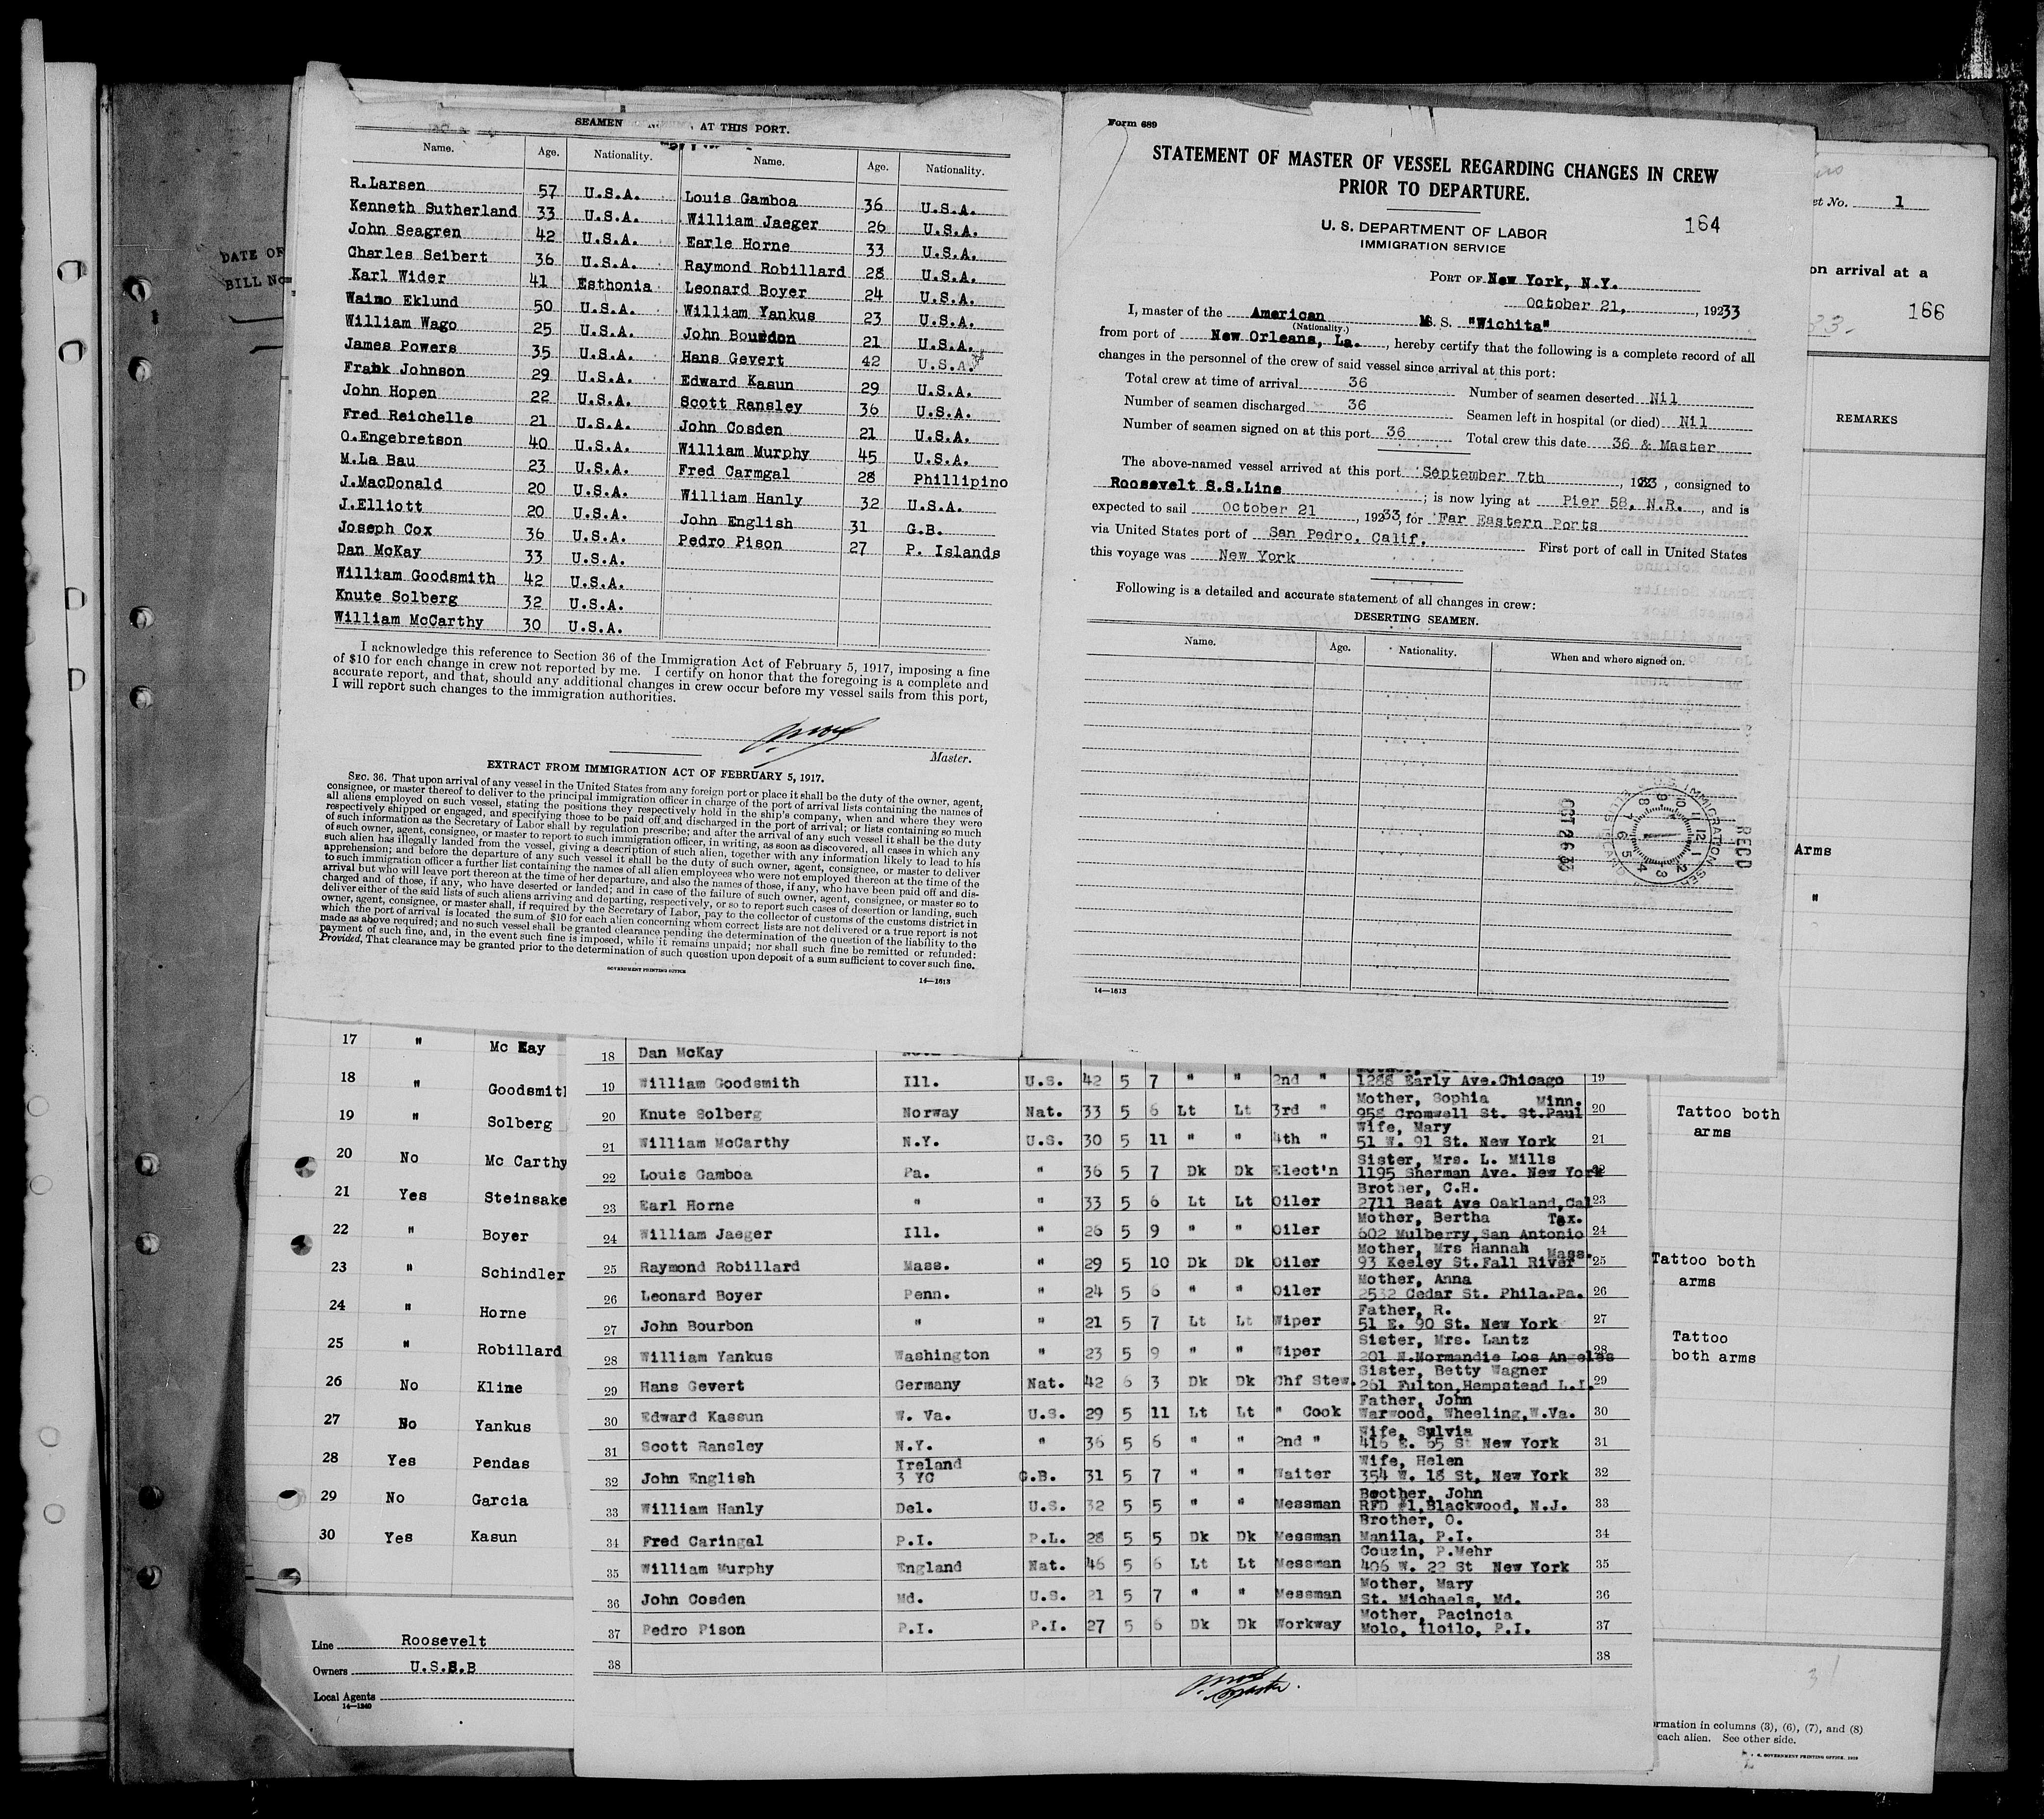 SEAMEN AT THIS PORT.
Name. Age. Nationality. Name. Age. Nationality.
R.Larsen 57 U.S.A. Louis Gamboa 36 U.S.A.
Kenneth Sutherland 33 U.S.A. William Jaeger 26 U.S.A.
John Seagren 42 U.S.A. Earle Horne 33 U.S.A.
Charles Seibert 36 U.S.A. Raymond Robillard 28 U.S.A.
Karl Wider 41 Esthonia Leonard Boyer 24 U.S.A.
Waino Eklund 50 U.S.A. William Yankus 23 U.S.A.
William Wago 25 U.S.A. John Bourdon 21 U.S.A.
James Powers 35 U.S.A. Hans Gevert 42 U.S.A.
Frank Johnson 29 U.S.A. Edward Kasun 29 U.S.A.
John Hopen 22 U.S.A. Scott Ransley 36 U.S.A.
Fred Reichelle 21 U.S.A. John Cosden 21 U.S.A.
O.Engebretson 40 U.S.A. William Murphy 45 U.S.A.
M.La Bau 23 U.S.A. Fred Carmgal 28 Phillipino
J.MacDonald 20 U.S.A. William Hanly 32 U.S.A.
J.Elliott 20 U.S.A. John English 31 G.B.
Joseph Cox 36 U.S.A. Pedro Pison 27 P. Islands
Dan McKay 33 U.S.A.
William Goodsmith 42 U.S.A.
Knute Solberg 32 U.S.A.
William McCarthy 30 U.S.A.
I acknowledge this reference to Section 36 of the Immigration Act of February 5, 1917, imposing a fine
of $10 for each change in crew not reported by me. I certify on honor that the foregoing is a complete and
accurate report, and that, should any additional changes in crew occur before my vessel sails from this port,
I will report such changes to the immigration authorities.
Master.
EXTRACT FROM IMMIGRATION ACT OF FEBRUARY 5, 1917.
SEC. 36. That upon arrival of any vessel in the United States from any foreign port or place it shall be the duty of the owner, agent,
consignee, or master thereof to deliver to the principal immigration officer in charge of the port of arrival lists containing the names of
all aliens employed on such vessel, stating the positions they respectively hold in the ship's company, when and where they were
respectively shipped or engaged, and specifying those to be paid off and discharged in the port of arrival; or lists containing so much
of such information as the Secretary of Labor shall by regulation prescribe; and after the arrival of any such vessel it shall be the duty
of such owner, agent, consignee, or master to report to such immigration officer, in writing, as soon as discovered, all cases in which any
such alien has illegally landed from the vessel, giving a description of such alien, together with any information likely to lead to his
apprehension; and before the departure of any such vessel it shall be the duty of such owner, agent, consignee, or master to deliver
to such immigration officer a further list containing the names of all alien employees who were not employed thereon at the time of the
arrival but who will leave port thereon at the time of her departure, and also the names of those, if any, who have been paid off and dis-
charged and of those, if any, who have deserted or landed; and in case of the failure of such owner, agent, consignee, or master so to
deliver either of the said lists of such aliens arriving and departing, respectively, or so to report such cases of desertion or landing, such
owner, agent, consignee, or master shall, if required by the Secretary of Labor, pay to the collector of customs of the customs district in
which the port of arrival is located the sum of $10 for each alien concerning whom correct lists are not delivered or a true report is not
made as above required; and no such vessel shall be granted clearance pending the determination of the question of the liability to the
payment of such fine, and, in the event such fine is imposed, while it remains unpaid; nor shall such fine be remitted or refunded:
Provided, That clearance may be granted prior to the determination of such question upon deposit of a sum sufficient to cover such fine.
GOVERNMENT PRINTING OFFICE
14—1613
Form 689
STATEMENT OF MASTER OF VESSEL REGARDING CHANGES IN CREW
PRIOR TO DEPARTURE.
164
U. S. DEPARTMENT OF LABOR
IMMIGRATION SERVICE
PORT OF New York, N.Y.
October 21, , 19233
I, master of the American MS. S. "Wichita"
(Nationality.)
from port of New Orleans, La. , hereby certify that the following is a complete record of all
changes in the personnel of the crew of said vessel since arrival at this port:
Total crew at time of arrival 36 Number of seamen deserted Nil
Number of seamen discharged 36 Seamen left in hospital (or died) Nil
Number of seamen signed on at this port 36 Total crew this date 36 & Master
The above-named vessel arrived at this port September 7th , 1933 , consigned to
Roosevelt S.S.Line ; is now lying at Pier 58, N.R. , and is
expected to sail October 21 , 19233, for Far Eastern Ports
via United States port of San Pedro, Calif. First port of call in United States
this voyage was New York
Following is a detailed and accurate statement of all changes in crew:
DESERTING SEAMEN.
Name. Age. Nationality. When and where signed on.
OCT 26 33
IMMIGRATION SER
ELLIS ISLAND
RECD
14—1613
DATE OF
BILL No
et No. 1
on arrival at a
166
33-
REMARKS
Arms
"
17 " Mc Kay
18 " Goodsmith
19 " Solberg
20 No Mc Carthy
21 Yes Steinsake
22 " Boyer
23 " Schindler
24 " Horne
25 " Robillard
26 No Kline
27 No Yankus
28 Yes Pendas
29 No Garcia
30 Yes Kasun
Line Roosevelt
Owners U.S.S.B
Local Agents
14—1240
18 Dan McKay
19 William Goodsmith Ill. U.S. 42 5 7 " " 2nd " 1288 Early Ave.Chicago 19
20 Knute Solberg Norway Nat. 33 5 6 Lt Lt 3rd " Mother, Sophia Minn.
958 Cromwell St. St.Paul 20
21 William McCarthy N.Y. U.S. 30 5 11 " " 4th " Wife, Mary
51 W. 91 St. New York 21
22 Louis Gamboa Pa. " 36 5 7 Dk Dk Elect'n Sister, Mrs. L. Mills
1195 Sherman Ave. New York 22
23 Earl Horne " " 33 5 6 Lt Lt Oiler Brother, C.H.
2711 Beat Ave Oakland,Cal 23
24 William Jaeger Ill. " 26 5 9 " " Oiler Mother, Bertha Tex.
602 Mulberry,San Antonio 24
25 Raymond Robillard Mass. " 29 5 10 Dk Dk Oiler Mother, Mrs Hannah Mass.
93 Keeley St.Fall River 25
26 Leonard Boyer Penn. " 24 5 6 " " Oiler Mother, Anna
2532 Cedar St. Phila.Pa. 26
27 John Bourbon " " 21 5 7 Lt Lt Wiper Father, R.
51 E. 90 St. New York 27
28 William Yankus Washington " 23 5 9 " " Wiper Sister, Mrs. Lantz
201 N.Normandie Los Angeles 28
29 Hans Gevert Germany Nat. 42 6 3 Dk Dk Chf Stew. Sister, Betty Wagner
261 Fulton,Hempstead L.I. 29
30 Edward Kassun W. Va. U.S. 29 5 11 Lt Lt " Cook Father, John
Warwood, Wheeling,W.Va. 30
31 Scott Ransley N.Y. " 36 5 6 " " 2nd " Wife, Sylvia
416 E. 65 St New York 31
32 John English Ireland
3 YC G.B. 31 5 7 " " Waiter Wife, Helen
354 W. 18 St, New York 32
33 William Hanly Del. U.S. 32 5 5 " " Messman Brother, John
RFD #1,Blackwood, N.J. 33
34 Fred Caringal P.I. P.L. 28 5 5 Dk Dk Messman Brother, O.
Manila, P.I. 34
35 William Murphy England Nat. 46 5 6 Lt Lt Messman Couzin, P.Mehr
406 W. 22 St New York 35
36 John Cosden Md. U.S. 21 5 7 " " Messman Mother, Mary
St. Michaels, Md. 36
37 Pedro Pison P.I. P.I. 27 5 6 Dk Dk Workway Mother, Pacincia
Molo, Iloilo, P.I. 37
38 38
Master.
Tattoo both
arms
Tattoo both
arms
Tattoo
both arms
31
ormation in columns (3), (6), (7), and (8)
each alien. See other side.
GOVERNMENT PRINTING OFFICE